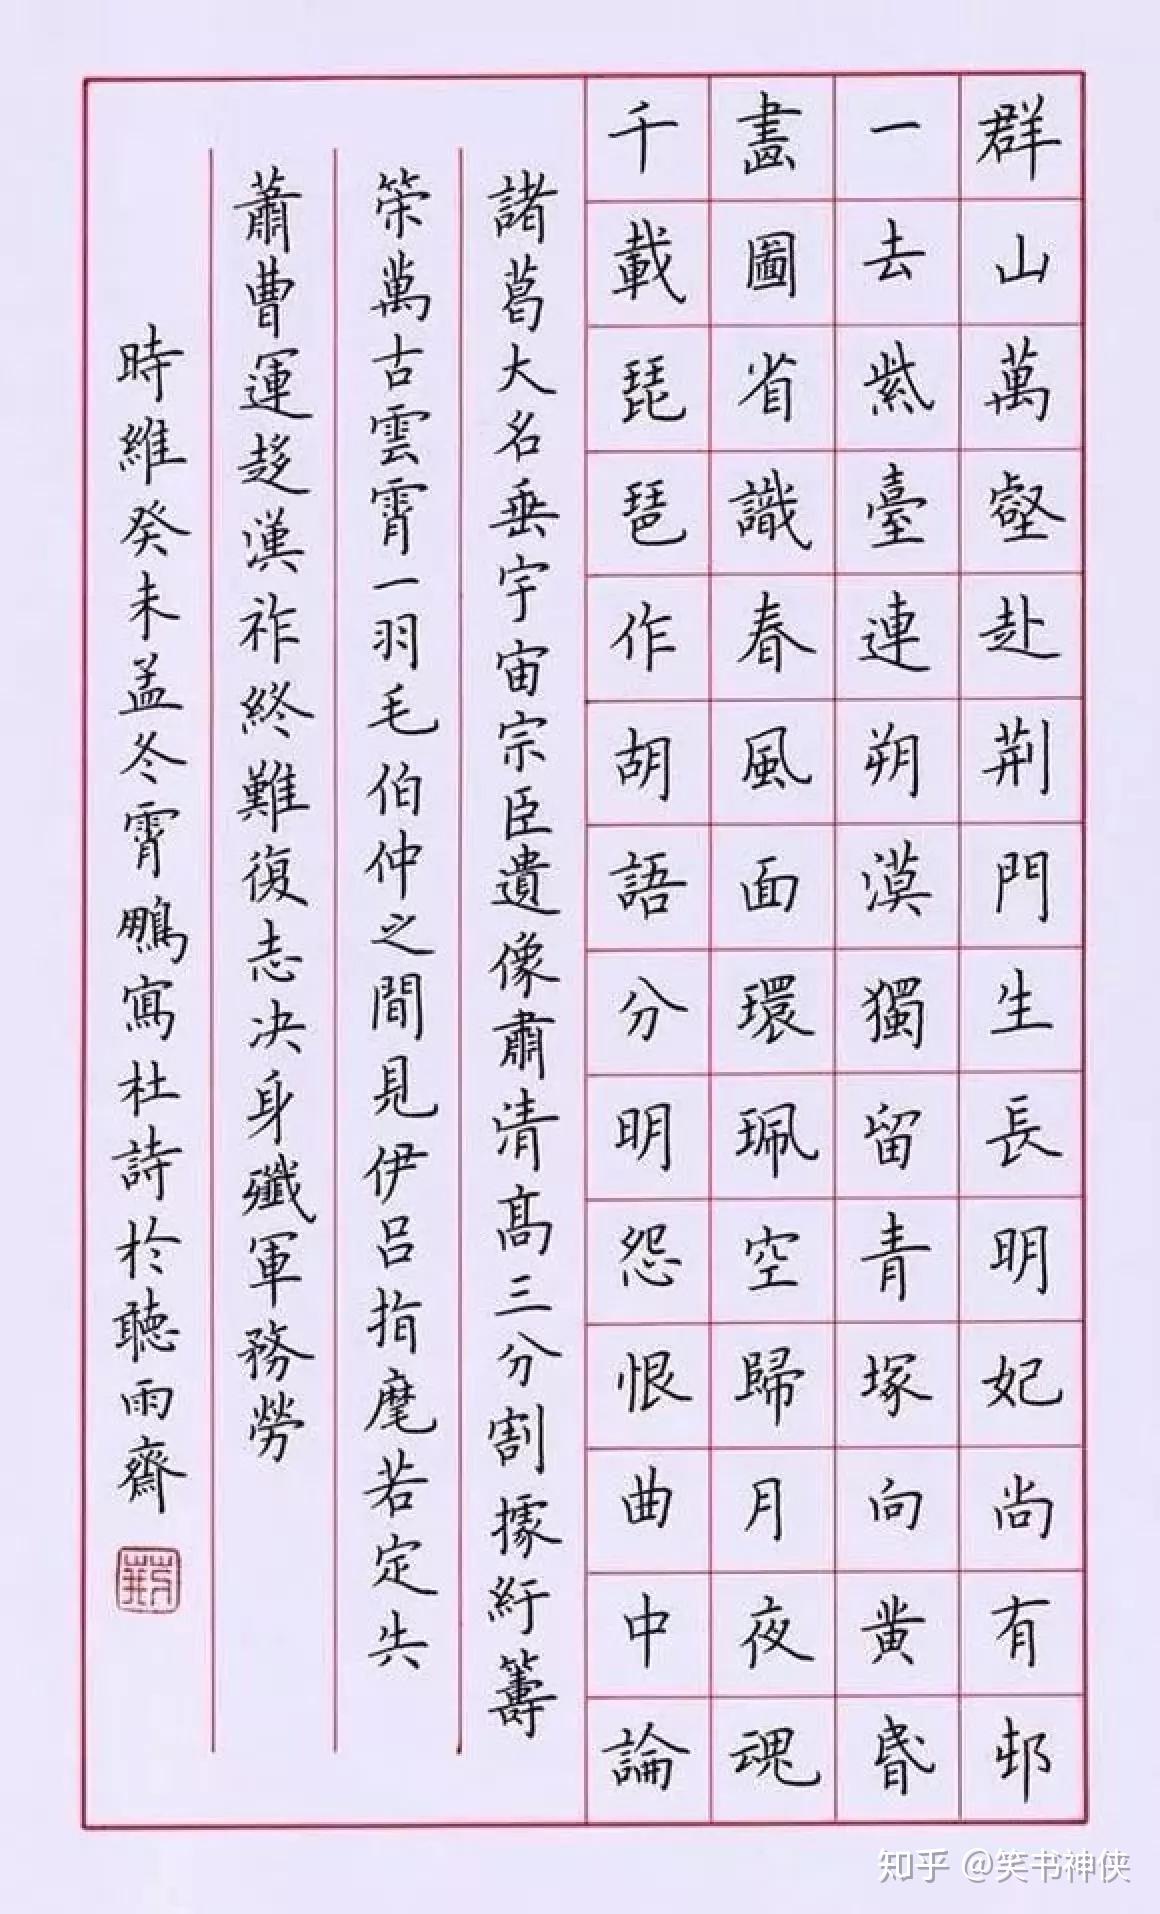 群山萬壑赴荆門生長明妃尚有邨
一去紫臺連朔漠獨留青塚向黄昬
畫圖省識春風面環珮空歸月夜魂
千載琵琶作胡語分明怨恨曲中論
諸葛大名垂宇宙宗臣遺像肅清髙三分割據紆籌
策萬古雲霄一羽毛伯仲之間見伊吕指麾若定失
蕭曹運趍漢祚終難復志决身殲軍務勞
時維癸未孟冬霄鵬寫杜詩於聽雨齋
知乎 @笑书神侠